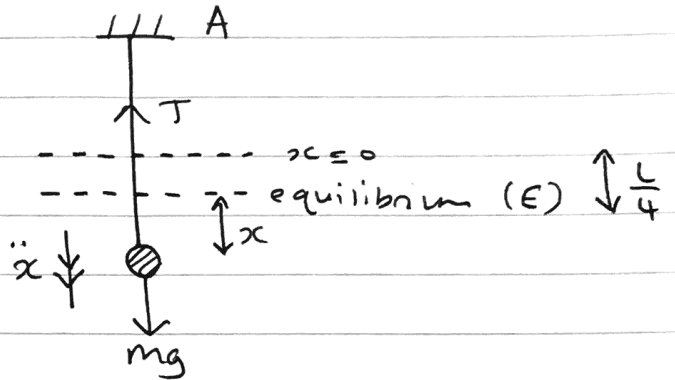 A
T
x = 0
equilibrium (E)
L/4
x
ẍ
mg